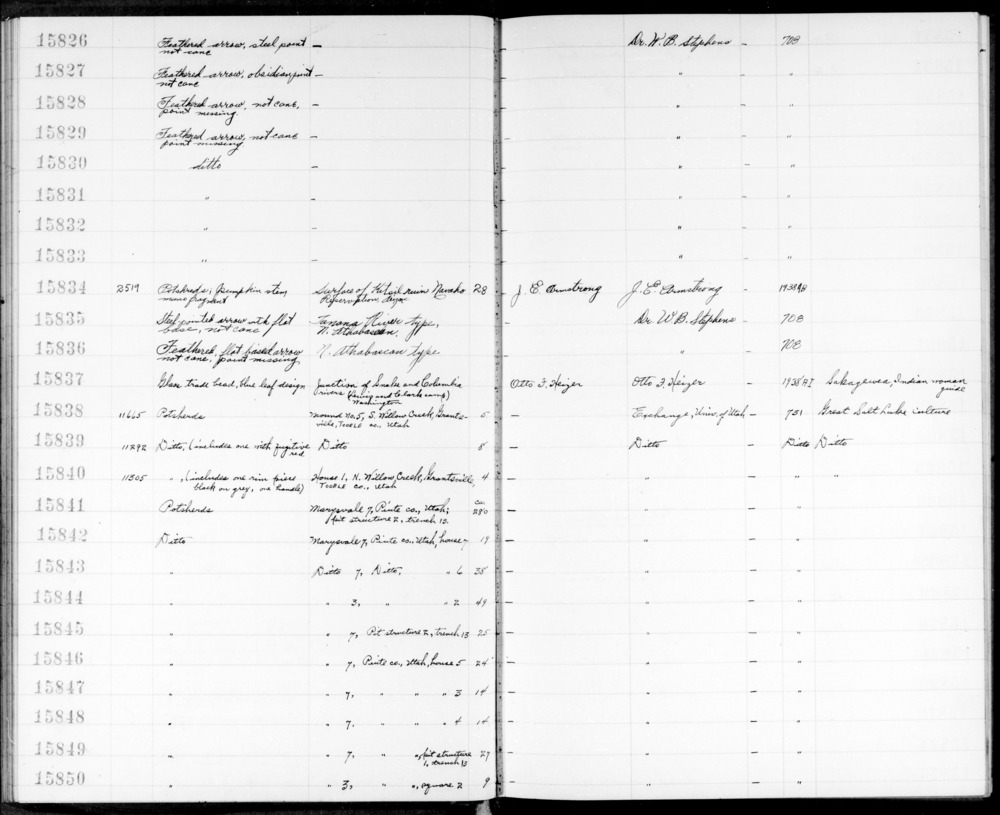 15826 Feathered arrow, steel point – – Dr. W. B. Stephens – 708
not cane
15827 Feathered arrow, obsidian point – – " – "
not cane
15828 Feathered arrow, not cane, – – " – "
point missing
15829 Feathered arrow, not cane – – " – "
point missing
15830 ditto – – " – "
15831 " – – " – "
15832 " – – " – "
15833 " – – " – "
15834 2519 Potsherds; pumpkin stem, Surface of ruin Navaho 28 J. E. Armstrong J. E. Armstrong – 1938
fragment Reservation,
15835 Steel pointed arrow with flat Tanana River type, Dr. W B. Stephens – 708
base, not cane N. Athabascan.
15836 Feathered, flat based arrow N. Athabascan type " 708
not cane, point missing
15837 Glass trade bead, blue leaf design Junction of Snake and Columbia Otto F. Heizer Otto F. Heizer – 1938 Sakagewea, Indian woman
rivers (Lewis and Clark camp) guide
Washington
15838 11665 Potsherds Mound No. 5, S. Willow Creek, Grants- 5 – Exchange, Univ. of Utah – 731 Great Salt Lake culture
ville, Tooele co., Utah
15839 11292 Ditto, (includes one with fugitive Ditto 8 – Ditto Ditto Ditto
red
15840 11305 ", (includes one rim piece House 1, N. Willow Creek, Grantsville, 4 – " – " "
black on grey, one handle) Tooele co., Utah
15841 Potsherds Marysvale 7, Piute co., Utah; ca. 280 – " – "
pit structure 2, trench 13
15842 Ditto Marysvale 7, Piute co., Utah, house 7 19 – " – "
15843 " Ditto 7, Ditto, " 6 35 – " – "
15844 " " 3, " " 2 49 – " – "
15845 " " 7, Pit structure 2, trench 13 25 – " – "
15846 " " 7, Piute co., Utah, house 5 24 – " – "
15847 " " 7, " " " 3 14 – " – "
15848 " " 7. " " " 4 14 – " – "
15849 " " 7, " ", pit structure 27 – " – "
1, trench 13
15850 " " 3, " ", square 2 9 – " – "